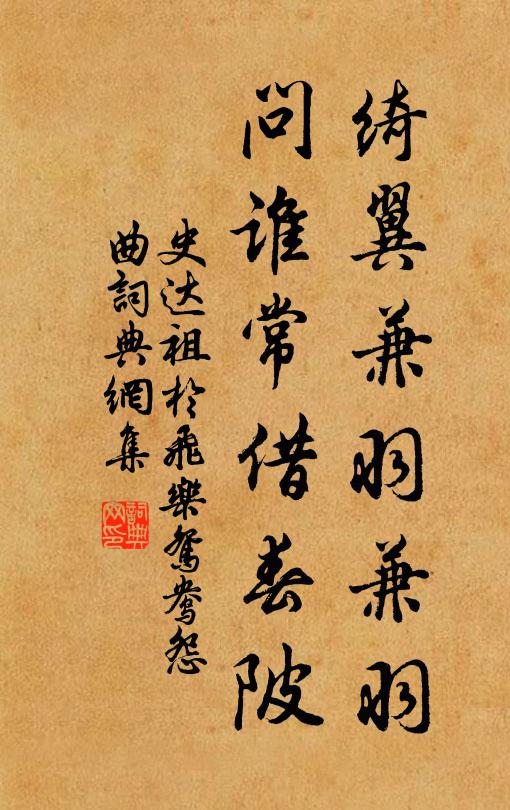 绮翼兼羽兼羽
问谁常借春陂
史达祖於飛樂鴛鴦怨
曲詞典網集
詞典
网印